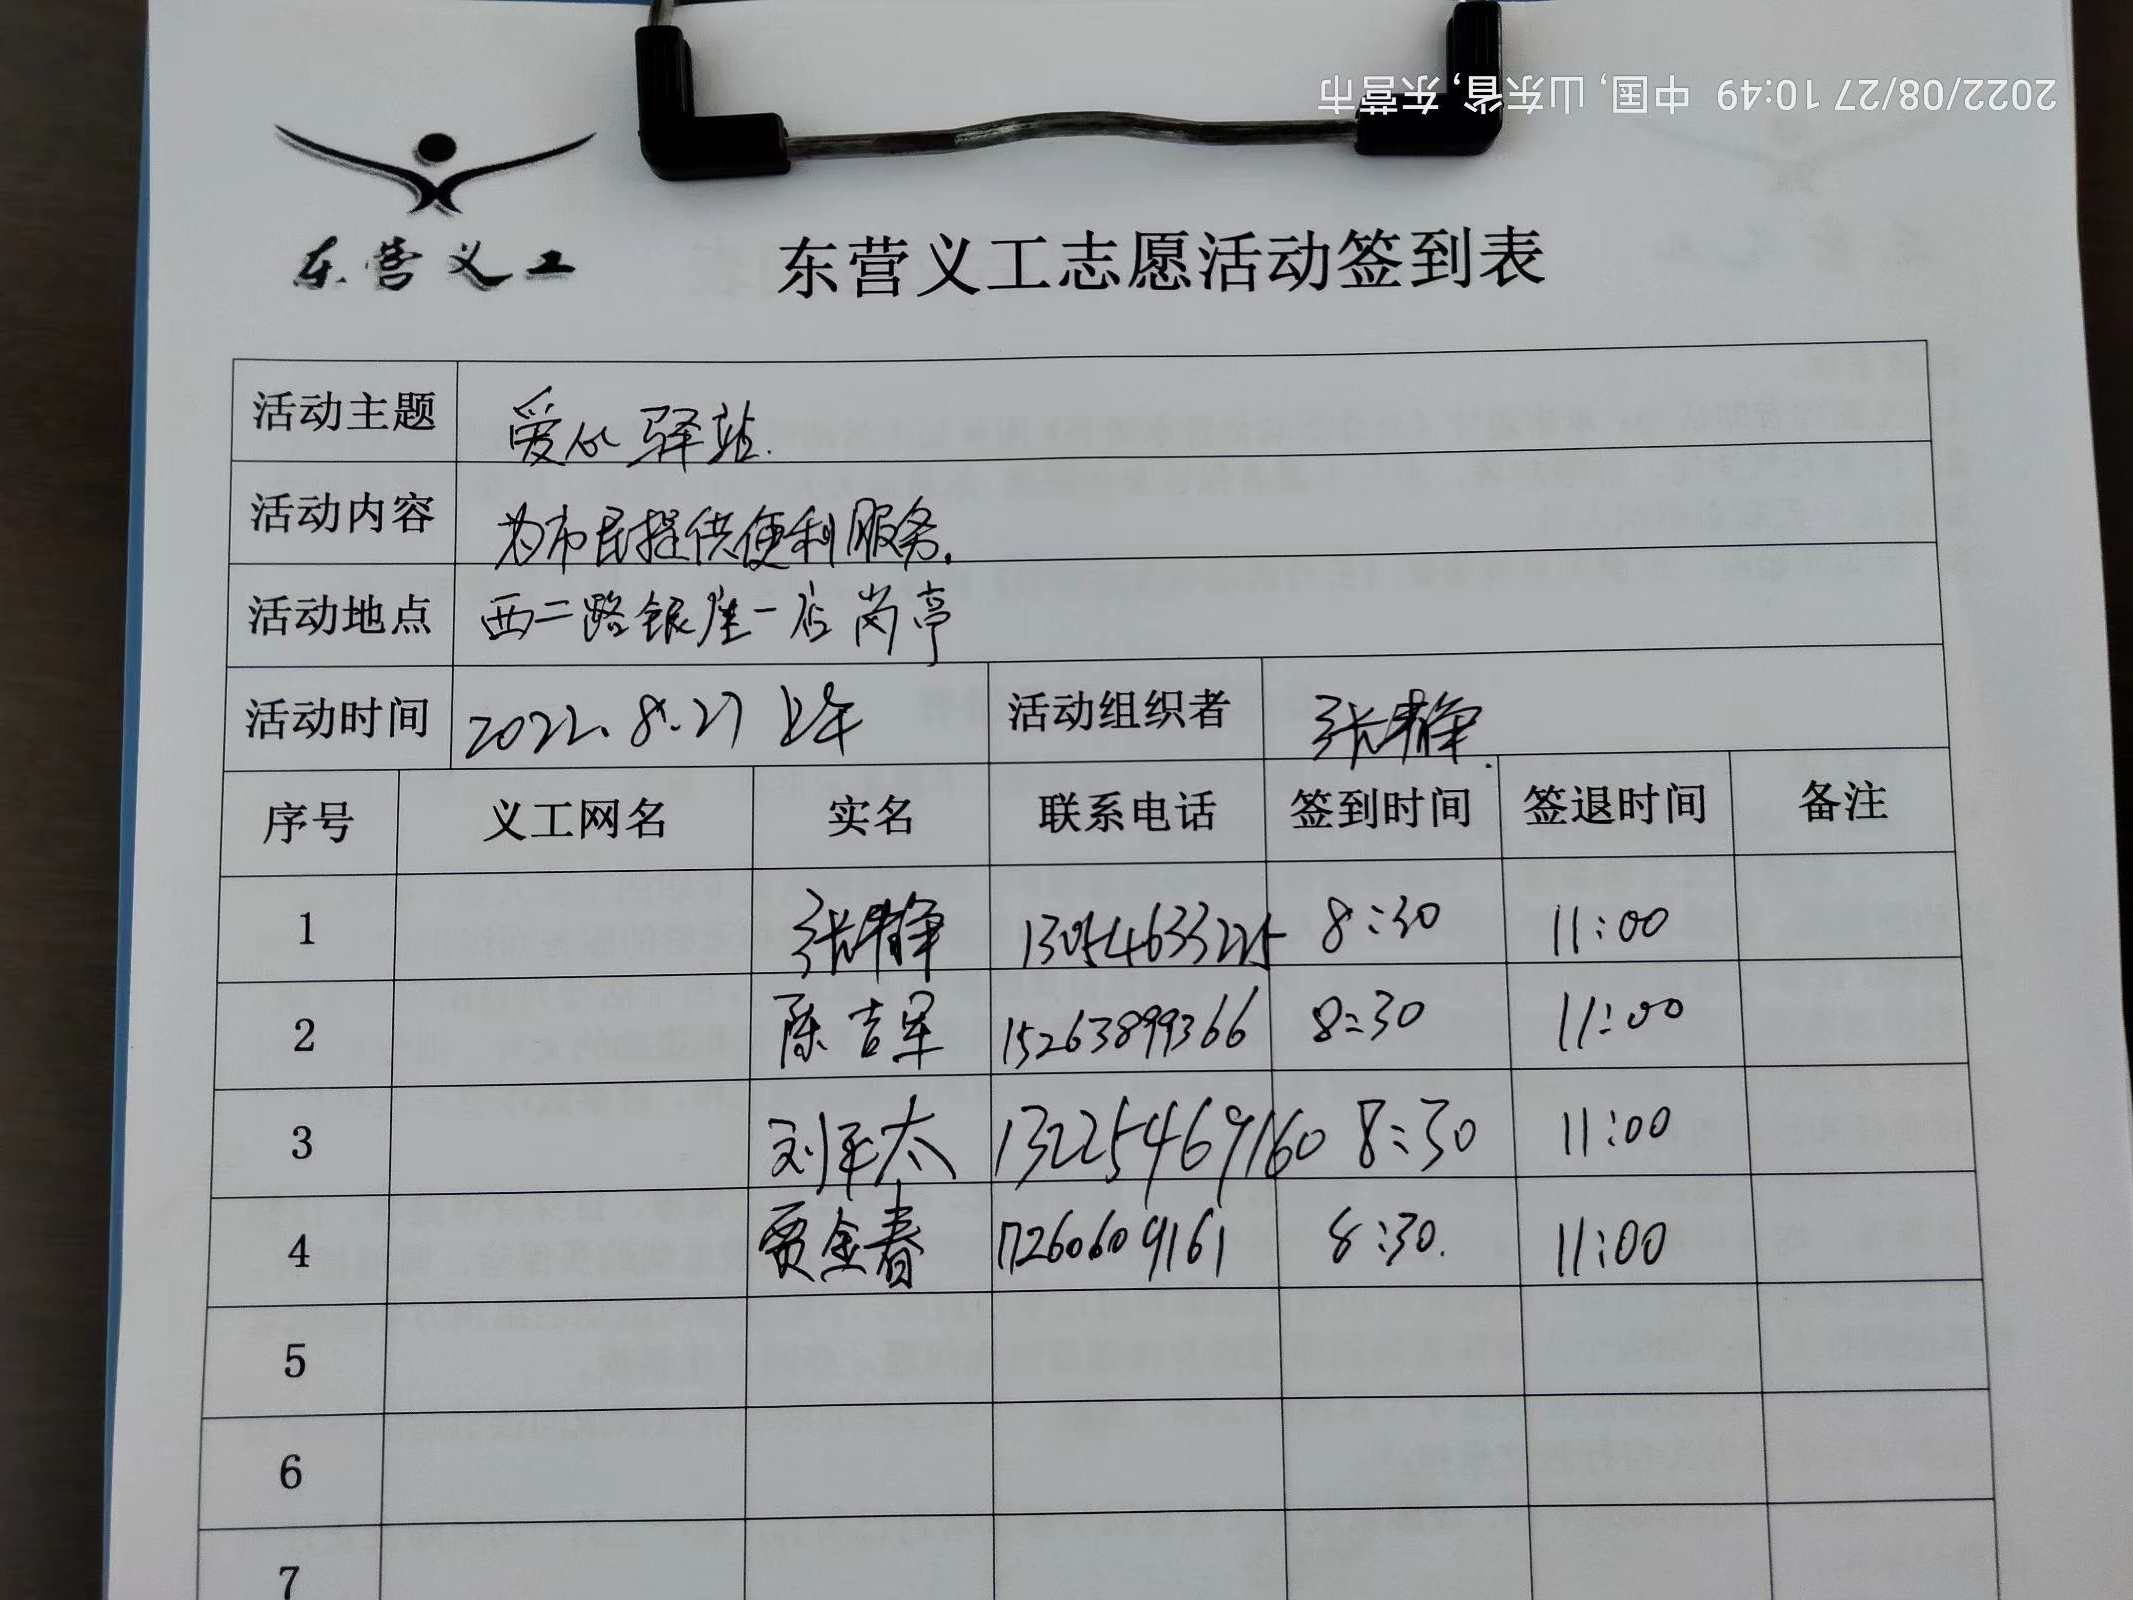 2022/08/27 10:49 中国, 山东省, 东营市
东营义工
东营义工志愿活动签到表
活动主题 爱心驿站.
活动内容 为市民提供便利服务.
活动地点 西二路银座一店岗亭
活动时间 2022.8.27 上午 活动组织者 张静.
序号 义工网名 实名 联系电话 签到时间 签退时间 备注
1 张静 13054633225 8:30 11:00
2 陈吉军 15263899366 8:30 11:00
3 刘平太 13225469160 8:30 11:00
4 贾金春 17260609161 8:30. 11:00
5
6
7